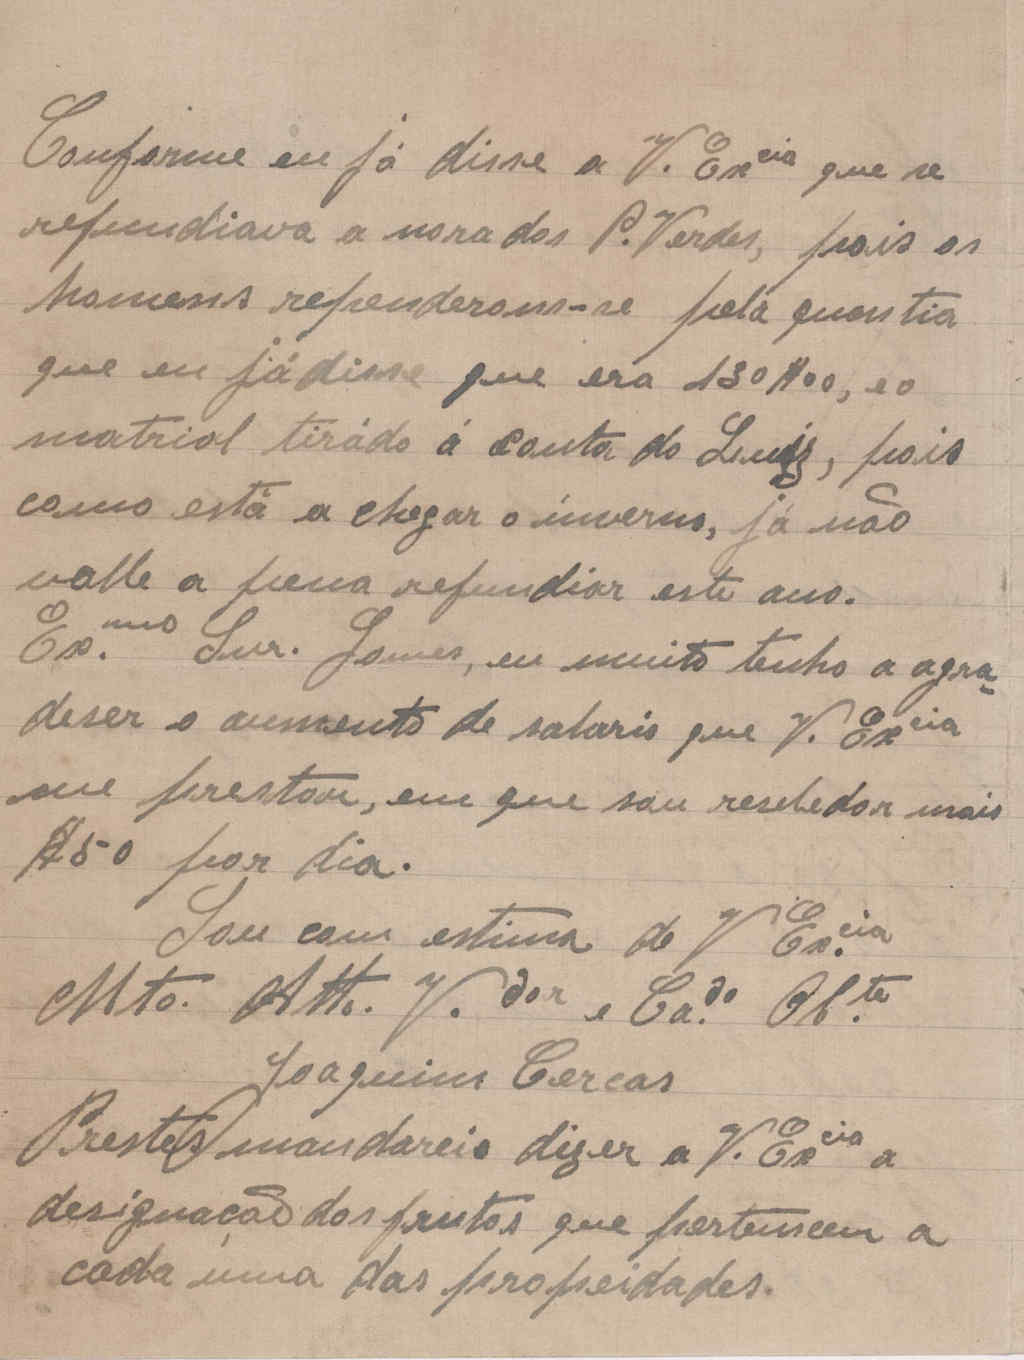 Conforme eu já disse a V. Excia que se
refundiava a nora dos P. Verdes, pois os
homens rependerom-se pela quantia
que eu já disse que era 130$00, e o
matrial tirádo á conta do Luis, pois
como está a chegar o inverno, já não
valle a pena refundiar este ano.
Ex.mo Snr. Gomes, eu muito tenho a agra-
deser o aumento de salario que V. Excia
me prestou, em que sou resebedor mais
$50 por dia.
Sou com estima de V Ex.cia
Mto. Atto. V.dor e Ca.do Ob.te
Joaquim Cercas
Prestes mandareio dizer a V. Excia a
designação dos frutos que pertencem a
cada uma das propeidades.